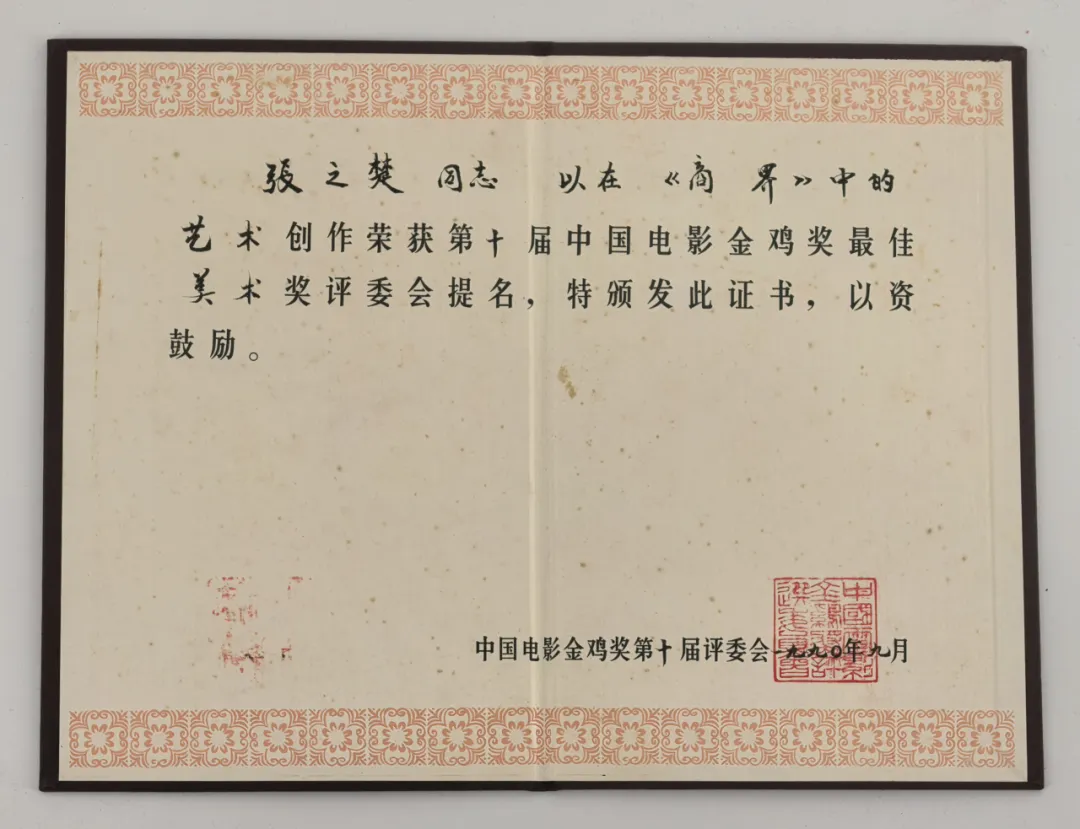 張之楚同志 以在《商界》中的
艺术创作荣获第十届中国电影金鸡奖最佳
美术奖评委会提名，特颁发此证书，以资
鼓励。
中国电影金鸡奖第十届评委会一九九〇年九月